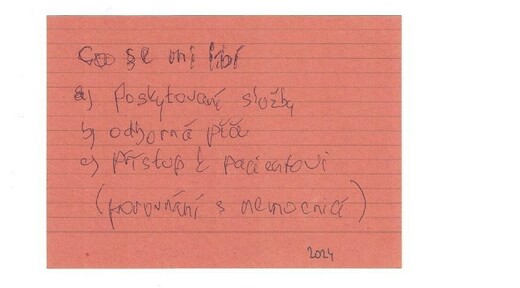 Co se mi líbí
a) poskytované služby
b) odborná péče
c) přístup k pacientovi
(porovnání s nemocnicí)
2024